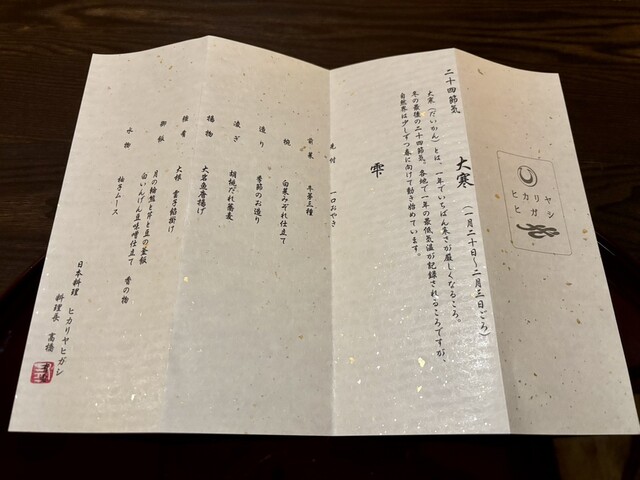 ヒカリヤ
ヒガシ
二十四節気
大寒 (一月二十日〜二月三日ごろ)
大寒（だいかん）とは、一年でいちばん寒さが厳しくなるころ。
冬の最後の二十四節気。各地で一年の最低気温が記録されるころですが、
自然界は少しずつ春に向けて動き始めています。
雫
先付 一口おやき
前菜 冬芽三種
椀 白菜みぞれ仕立て
造り 季節のお造り
凌ぎ 胡桃だれ蕎麦
揚物 大岩魚唐揚げ
強肴 大根 雲子餡掛け
御飯 月の輪熊と芹と豆の釜飯
白いんげん豆味噌仕立て 香の物
水物 柚子ムース
日本料理 ヒカリヤヒガシ
料理長 高橋